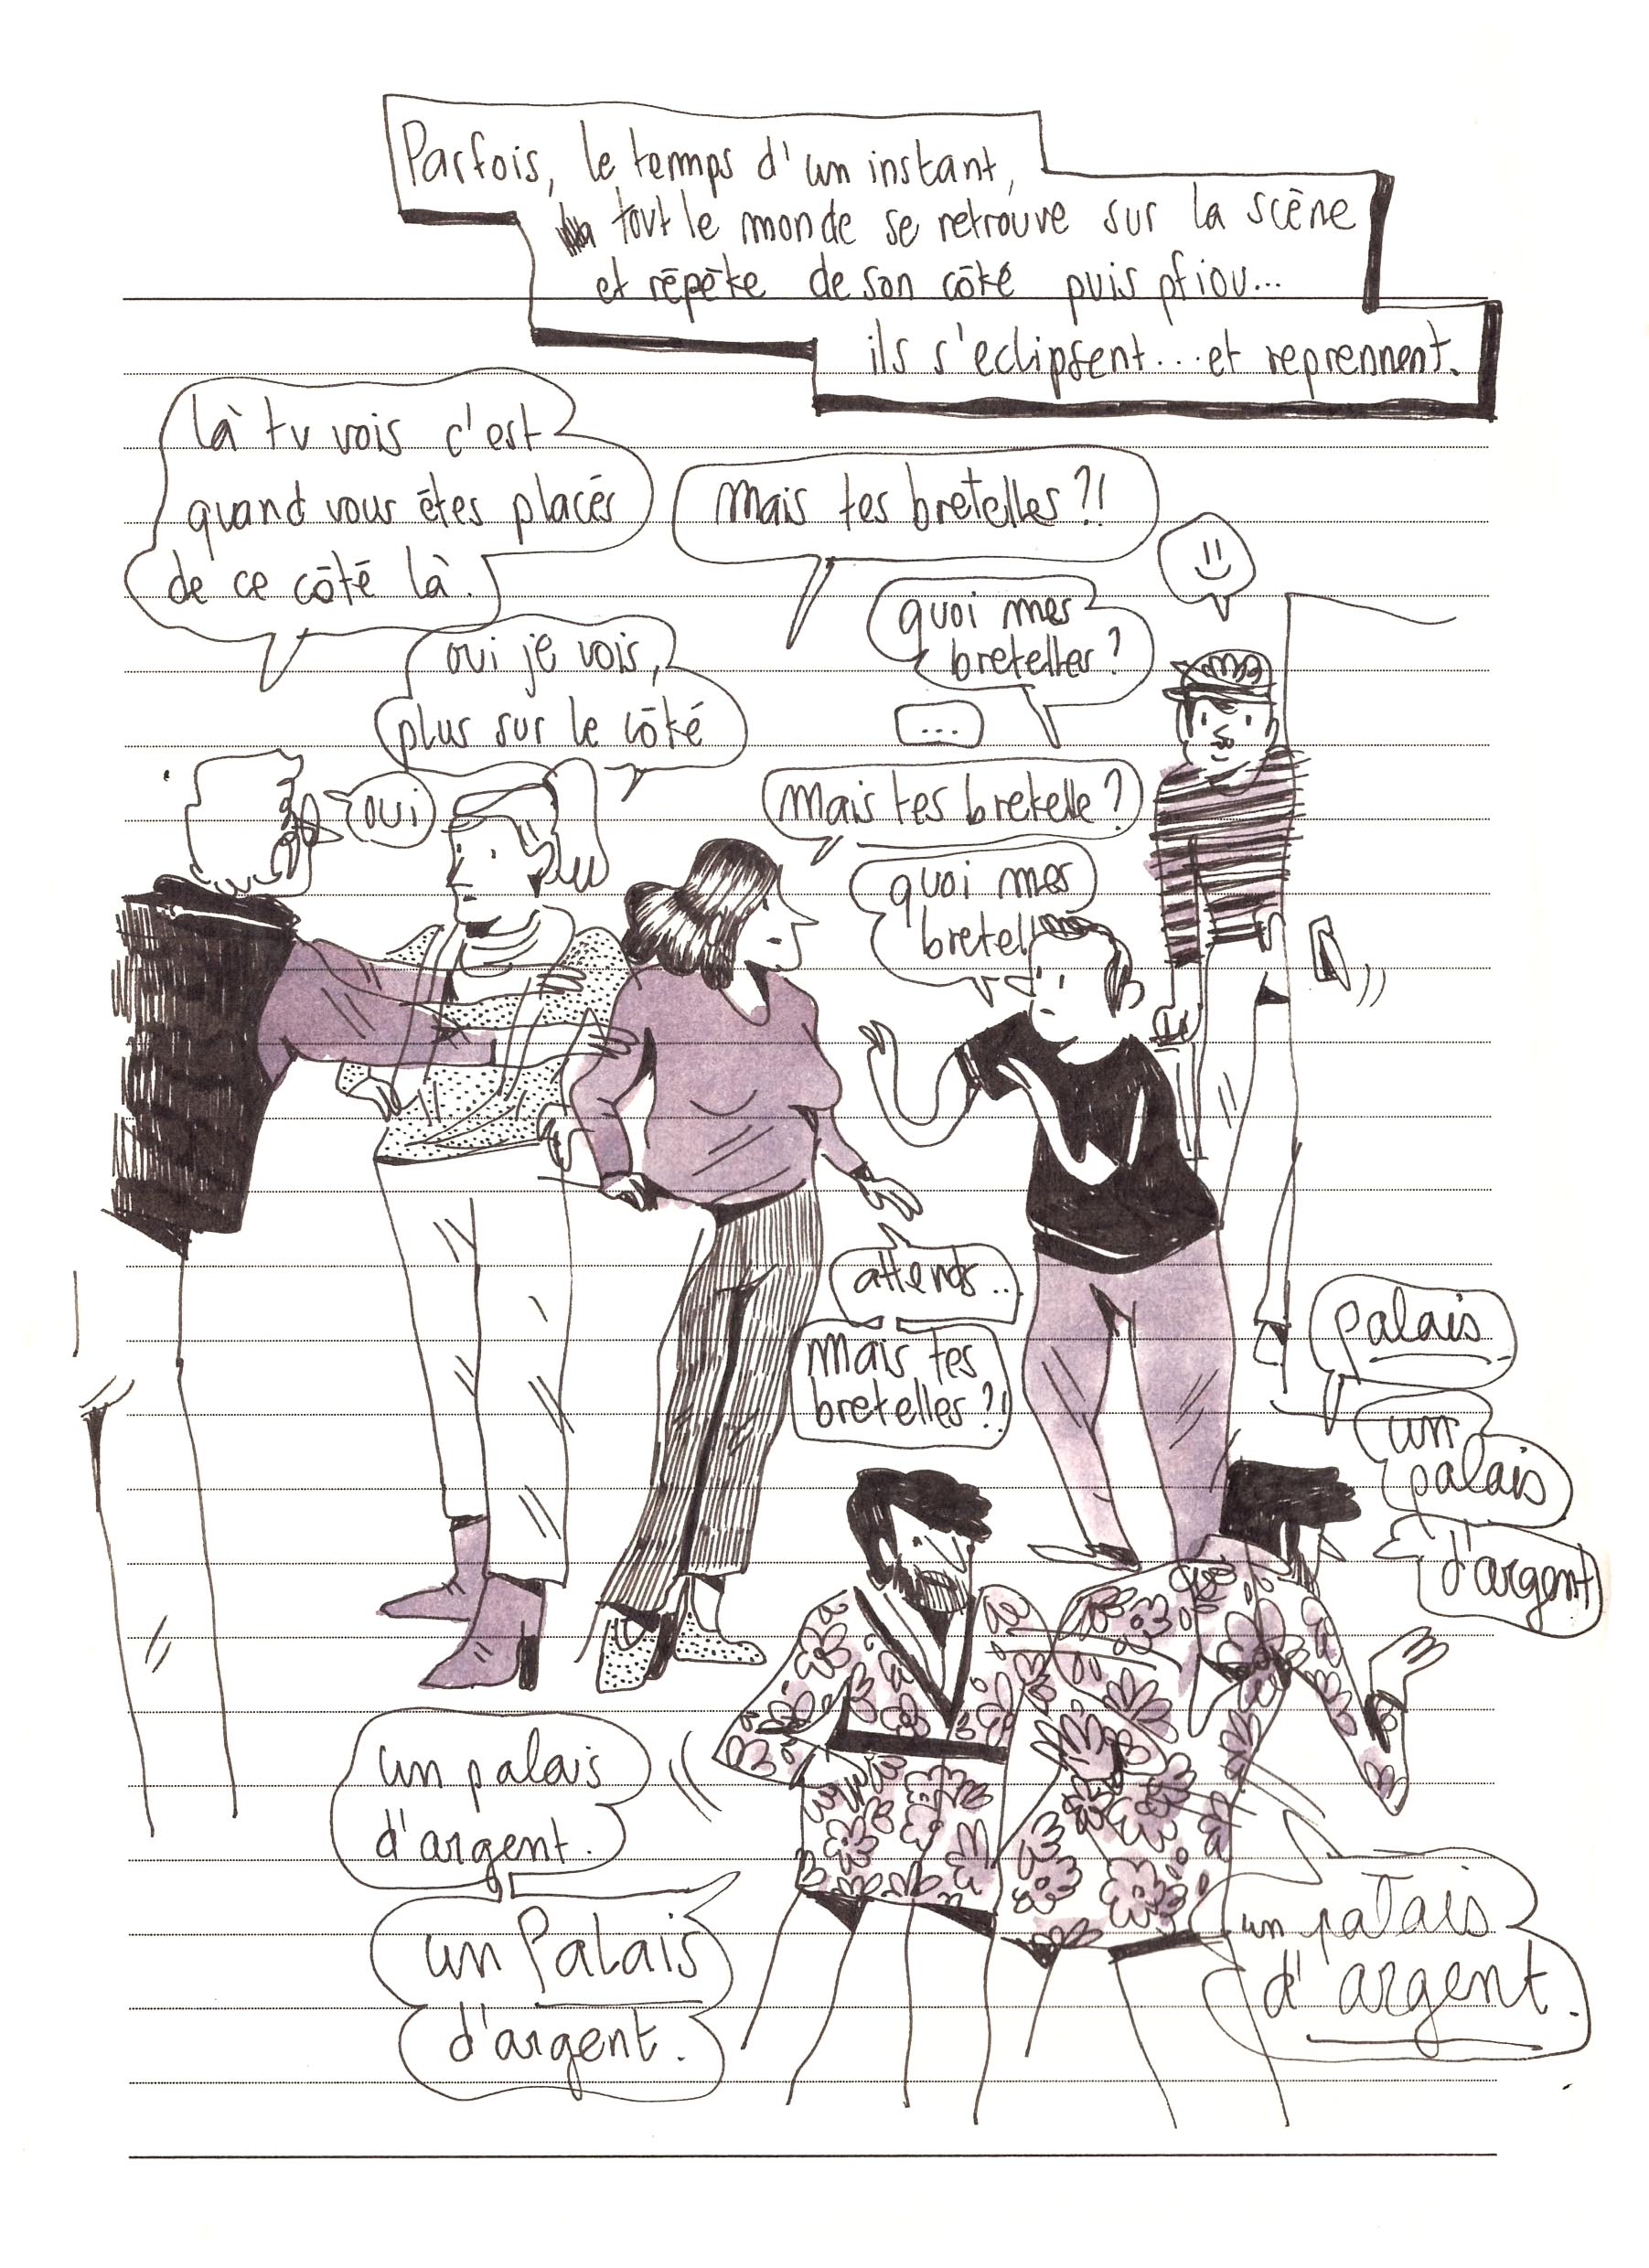 Parfois, le temps d'un instant,
tout le monde se retrouve sur la scène
et répète de son côté puis pfiou...
ils s'eclipsent... et reprennent.
là tu vois c'est
quand vous êtes placés
de ce côté là.
oui je vois,
plus sur le côté
oui
mais tes bretelles ?!
quoi mes
bretelles ?
...
mais tes bretelle ?
quoi mes
bretel
attends...
mais tes
bretelles ?!
palais
un
palais
d'argent
un palais
d'argent.
un Palais
d'argent.
un palais
d'argent.